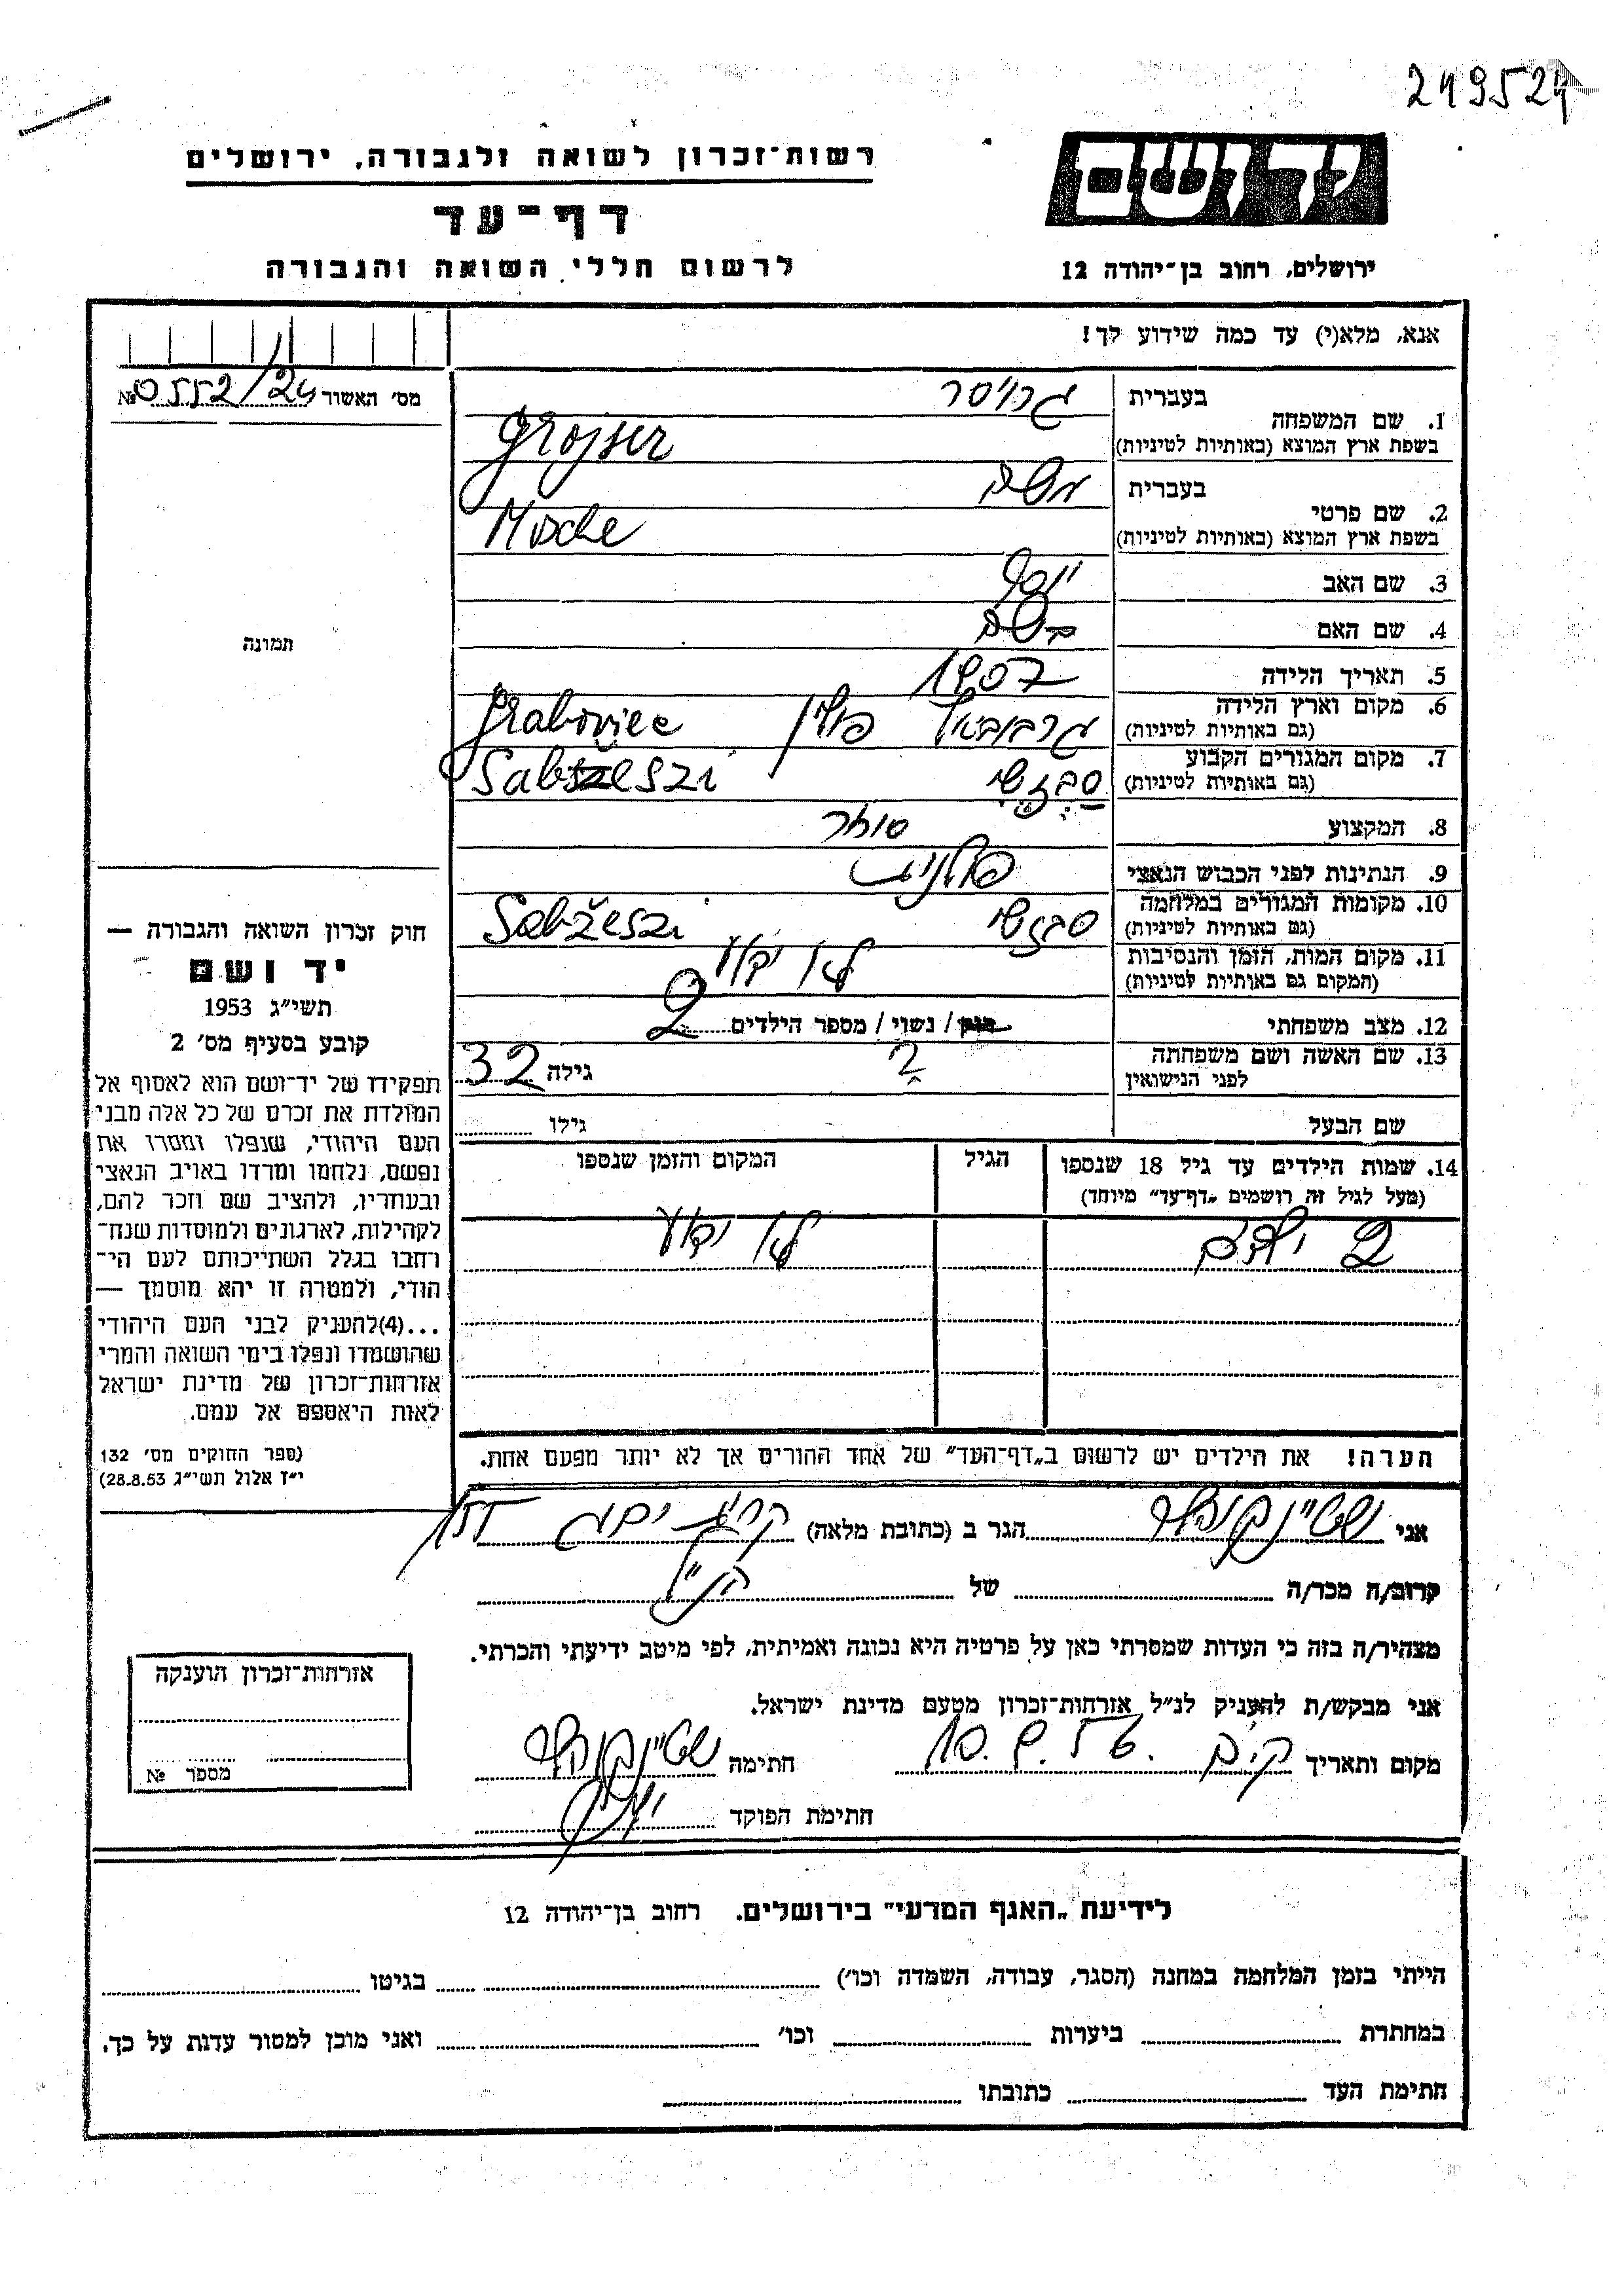 219524
יד ושם
רשות־זכרון לשואה ולגבורה, ירושלים
דף־עד
ירושלים, רחוב בן־יהודה 12
לרשום חללי השואה והגבורה
אנא, מלא(י) עד כמה שידוע לך!
מס׳ האשור № 0552/24
בעברית גרויסר
1. שם המשפחה
בשפת ארץ המוצא (באותיות לטיניות) Grojser
בעברית משה
2. שם פרטי
בשפת ארץ המוצא (באותיות לטיניות) Mosche
3. שם האב יוסף
4. שם האם
5. תאריך הלידה 1907
6. מקום וארץ הלידה
(גם באותיות לטיניות) פולין Graboviec
7. מקום המגורים הקבוע
(גם באותיות לטיניות) סבז'שי Sabžeszi
8. המקצוע סוחר
9. הנתינות לפני הכבוש הנאצי פולנית
10. מקומות המגורים במלחמה
(גם באותיות לטיניות) סבז'שי Sabžeszi
11. מקום המות, הזמן והנסיבות
(המקום גם באותיות לטיניות) לא ידוע
12. מצב משפחתי רווק / נשוי / מספר הילדים 2
13. שם האשה ושם משפחתה
לפני הנישואין ? גילה 32
שם הבעל גילו
14. שמות הילדים עד גיל 18 שנספו הגיל המקום והזמן שנספו
(מעל לגיל זה רושמים „דף־עד״ מיוחד)
2 ילדים לא ידוע
הערה! את הילדים יש לרשום ב„דף־העד״ של אחד ההורים אך לא יותר מפעם אחת.
תמונה
חוק זכרון השואה והגבורה —
יד ושם
תשי״ג 1953
קובע בסעיף מס׳ 2
תפקידו של יד־ושם הוא לאסוף אל
המולדת את זכרם של כל אלה מבני
העם היהודי, שנפלו ומסרו את
נפשם, נלחמו ומרדו באויב הנאצי
ובעוזריו, ולהציב שם וזכר להם,
לקהילות, לארגונים ולמוסדות שנח־
רחבו בגלל השתייכותם לעם הי־
הודי, ולמטרה זו יהא מוסמך —
...(4)להעניק לבני העם היהודי
שהושמדו ונפלו בימי השואה והמרי
אזרחות־זכרון של מדינת ישראל
לאות היאספם אל עמם.
(ספר החוקים מס׳ 132
י״ז אלול תשי״ג 28.8.53)
אני הגר ב (כתובת מלאה)
קרוב/ה מכר/ה של הנ״ל
מצהיר/ה בזה כי העדות שמסרתי כאן על פרטיה היא נכונה ואמיתית, לפי מיטב ידיעתי והכרתי.
אני מבקש/ת להעניק לנ״ל אזרחות־זכרון מטעם מדינת ישראל.
מקום ותאריך 10.9.56 חתימה
חתימת הפוקד
אזרחות־זכרון הוענקה
מספר №
לידיעת „האגף המדעי״ בירושלים, רחוב בן־יהודה 12
הייתי בזמן המלחמה במחנה (הסגר, עבודה, השמדה וכו׳) בגיטו
במחתרת ביערות וכו׳ ואני מוכן למסור עדות על כך.
חתימת העד כתובתו